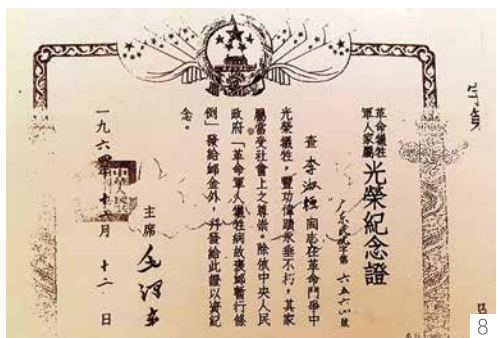 革命犧牲
軍人家屬
光榮紀念證
字第 六五六 號
查 李淑桓 同志在革命鬥爭中
光榮犧牲,豐功偉蹟永垂不朽,其家
屬當受社會上之尊崇。除依中央人民
政府「革命軍人犧牲病故褒卹暫行條
例」發給卹金外,幷發給此證以資記
念。
主席 毛澤東
一九六四年 月 十二 日
8